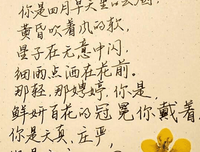 你是四月早天里的云烟，
黄昏吹着风的软，
星子在无意中闪，
细雨点洒在花前。
那轻，那娉婷，你是，
鲜妍百花的冠冕你戴着
你是天真，庄严，